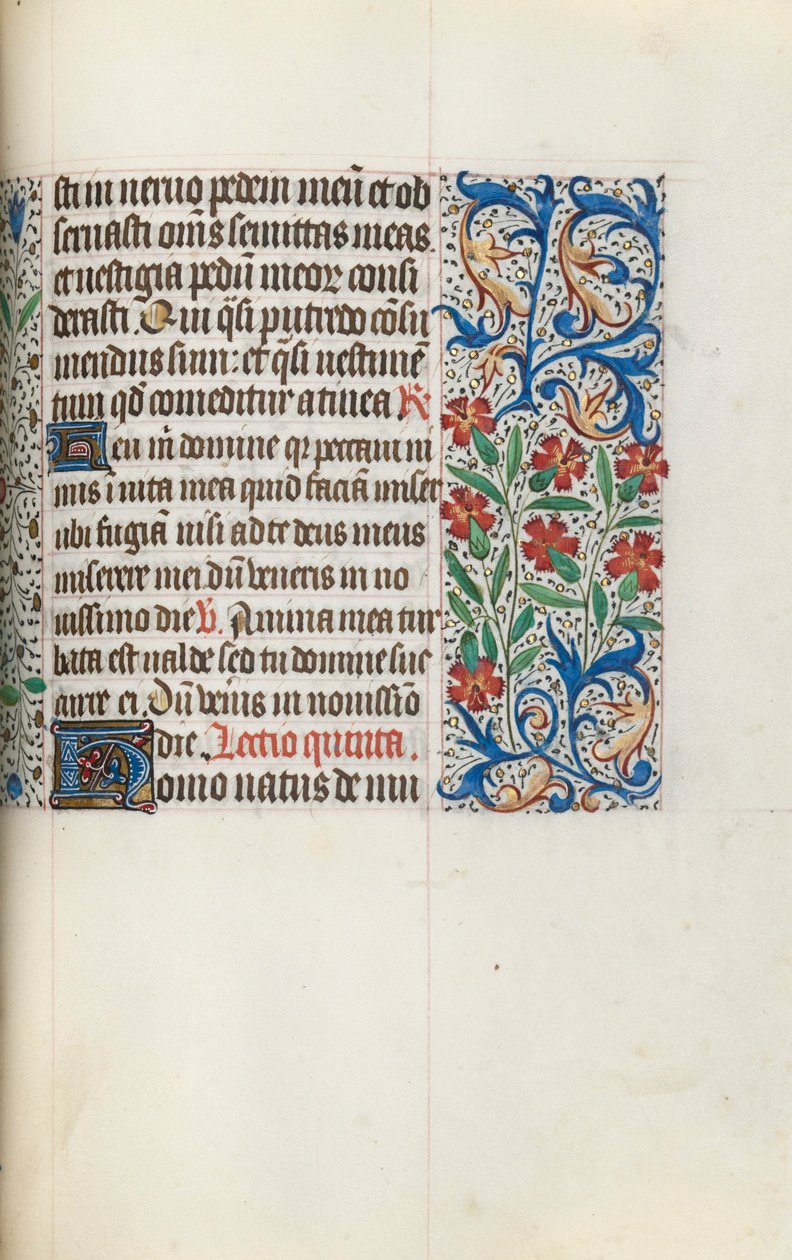 sti in neruo pedem meū et ob
seruasti om̄s semittas meas.
et uestigia pedū meoꝝ consi
derasti. Qui q̄si putredo cōsu
mendus sum: et q̄si uestimē
tum qd̄ comeditur a tinea R̷
Heu m̄ domine qꝛ peccaui ni
mis ī uita mea quid faciā miser
ubi fugiā nisi ad te deus meus
miserere mei dū veneris in no
uissimo die V̷. Anima mea tur
bata est ualde sed tu domine suc
curre ei. Dū ven̄is in nouissīo
die. Lectio quinta.
Homo natus de mu